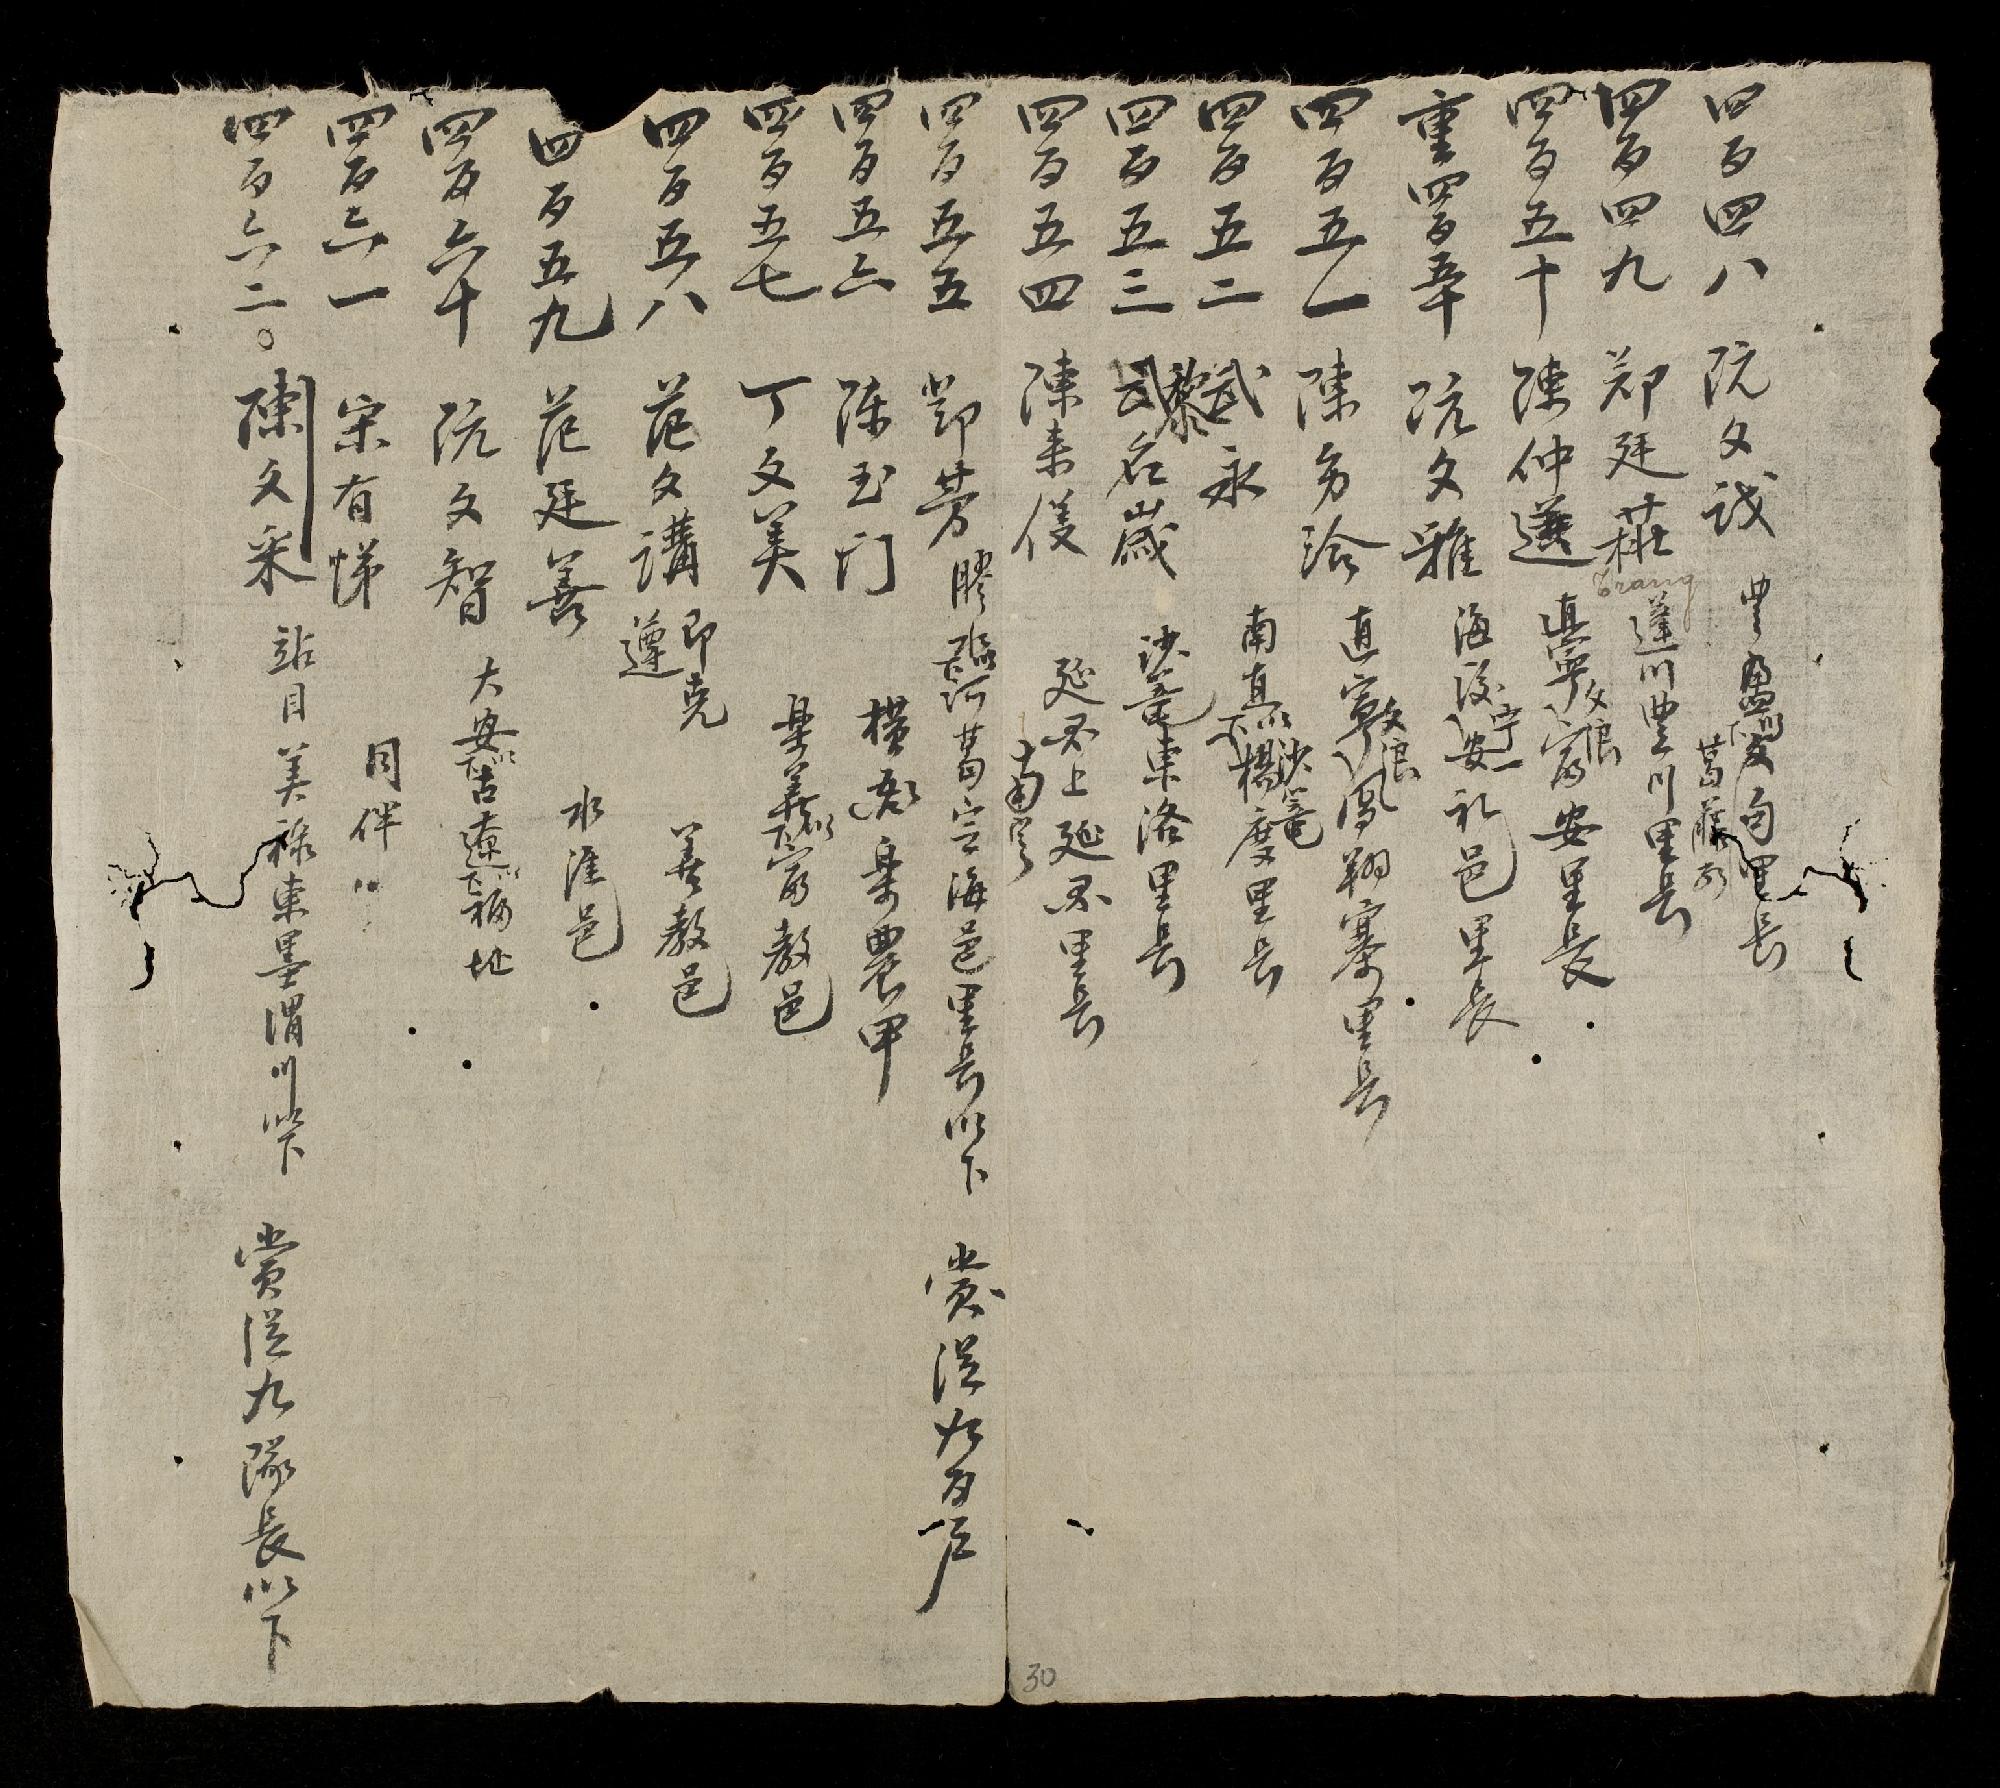 四百四八 阮文 豊盈 里長
葛藤
四百四九 鄭廷莊 蓬川豊川里長
Trang
四百五十 陳仲選 真寧富安里長
文浪
重四百五十 阮文雅 海後安礼邑里長
宁一
四百五一 陳多洽 直寧鳳翔寨里長
文浪
四百五二 武永 南真楊度里長
沙篭
四百五三 黎名崴 沙篭東洛里長
四百五四 陳 延不上延不里長
南定
四百五五 鄧芳 膠 葛宣海邑里長以下 賞従九百戸
四百五六 陳玉门 農甲
四百五七 丁文美 義 富教邑
四百五八 范文講 善教邑
即克
遵
四百五九 范廷善 水淮邑
四百六十 阮文智 大安 古遼 福址
四百六一 宋有悌 同伴
四百六二。陳文采 站目美禄東墨渭川以下 賞従九隊長以下
30